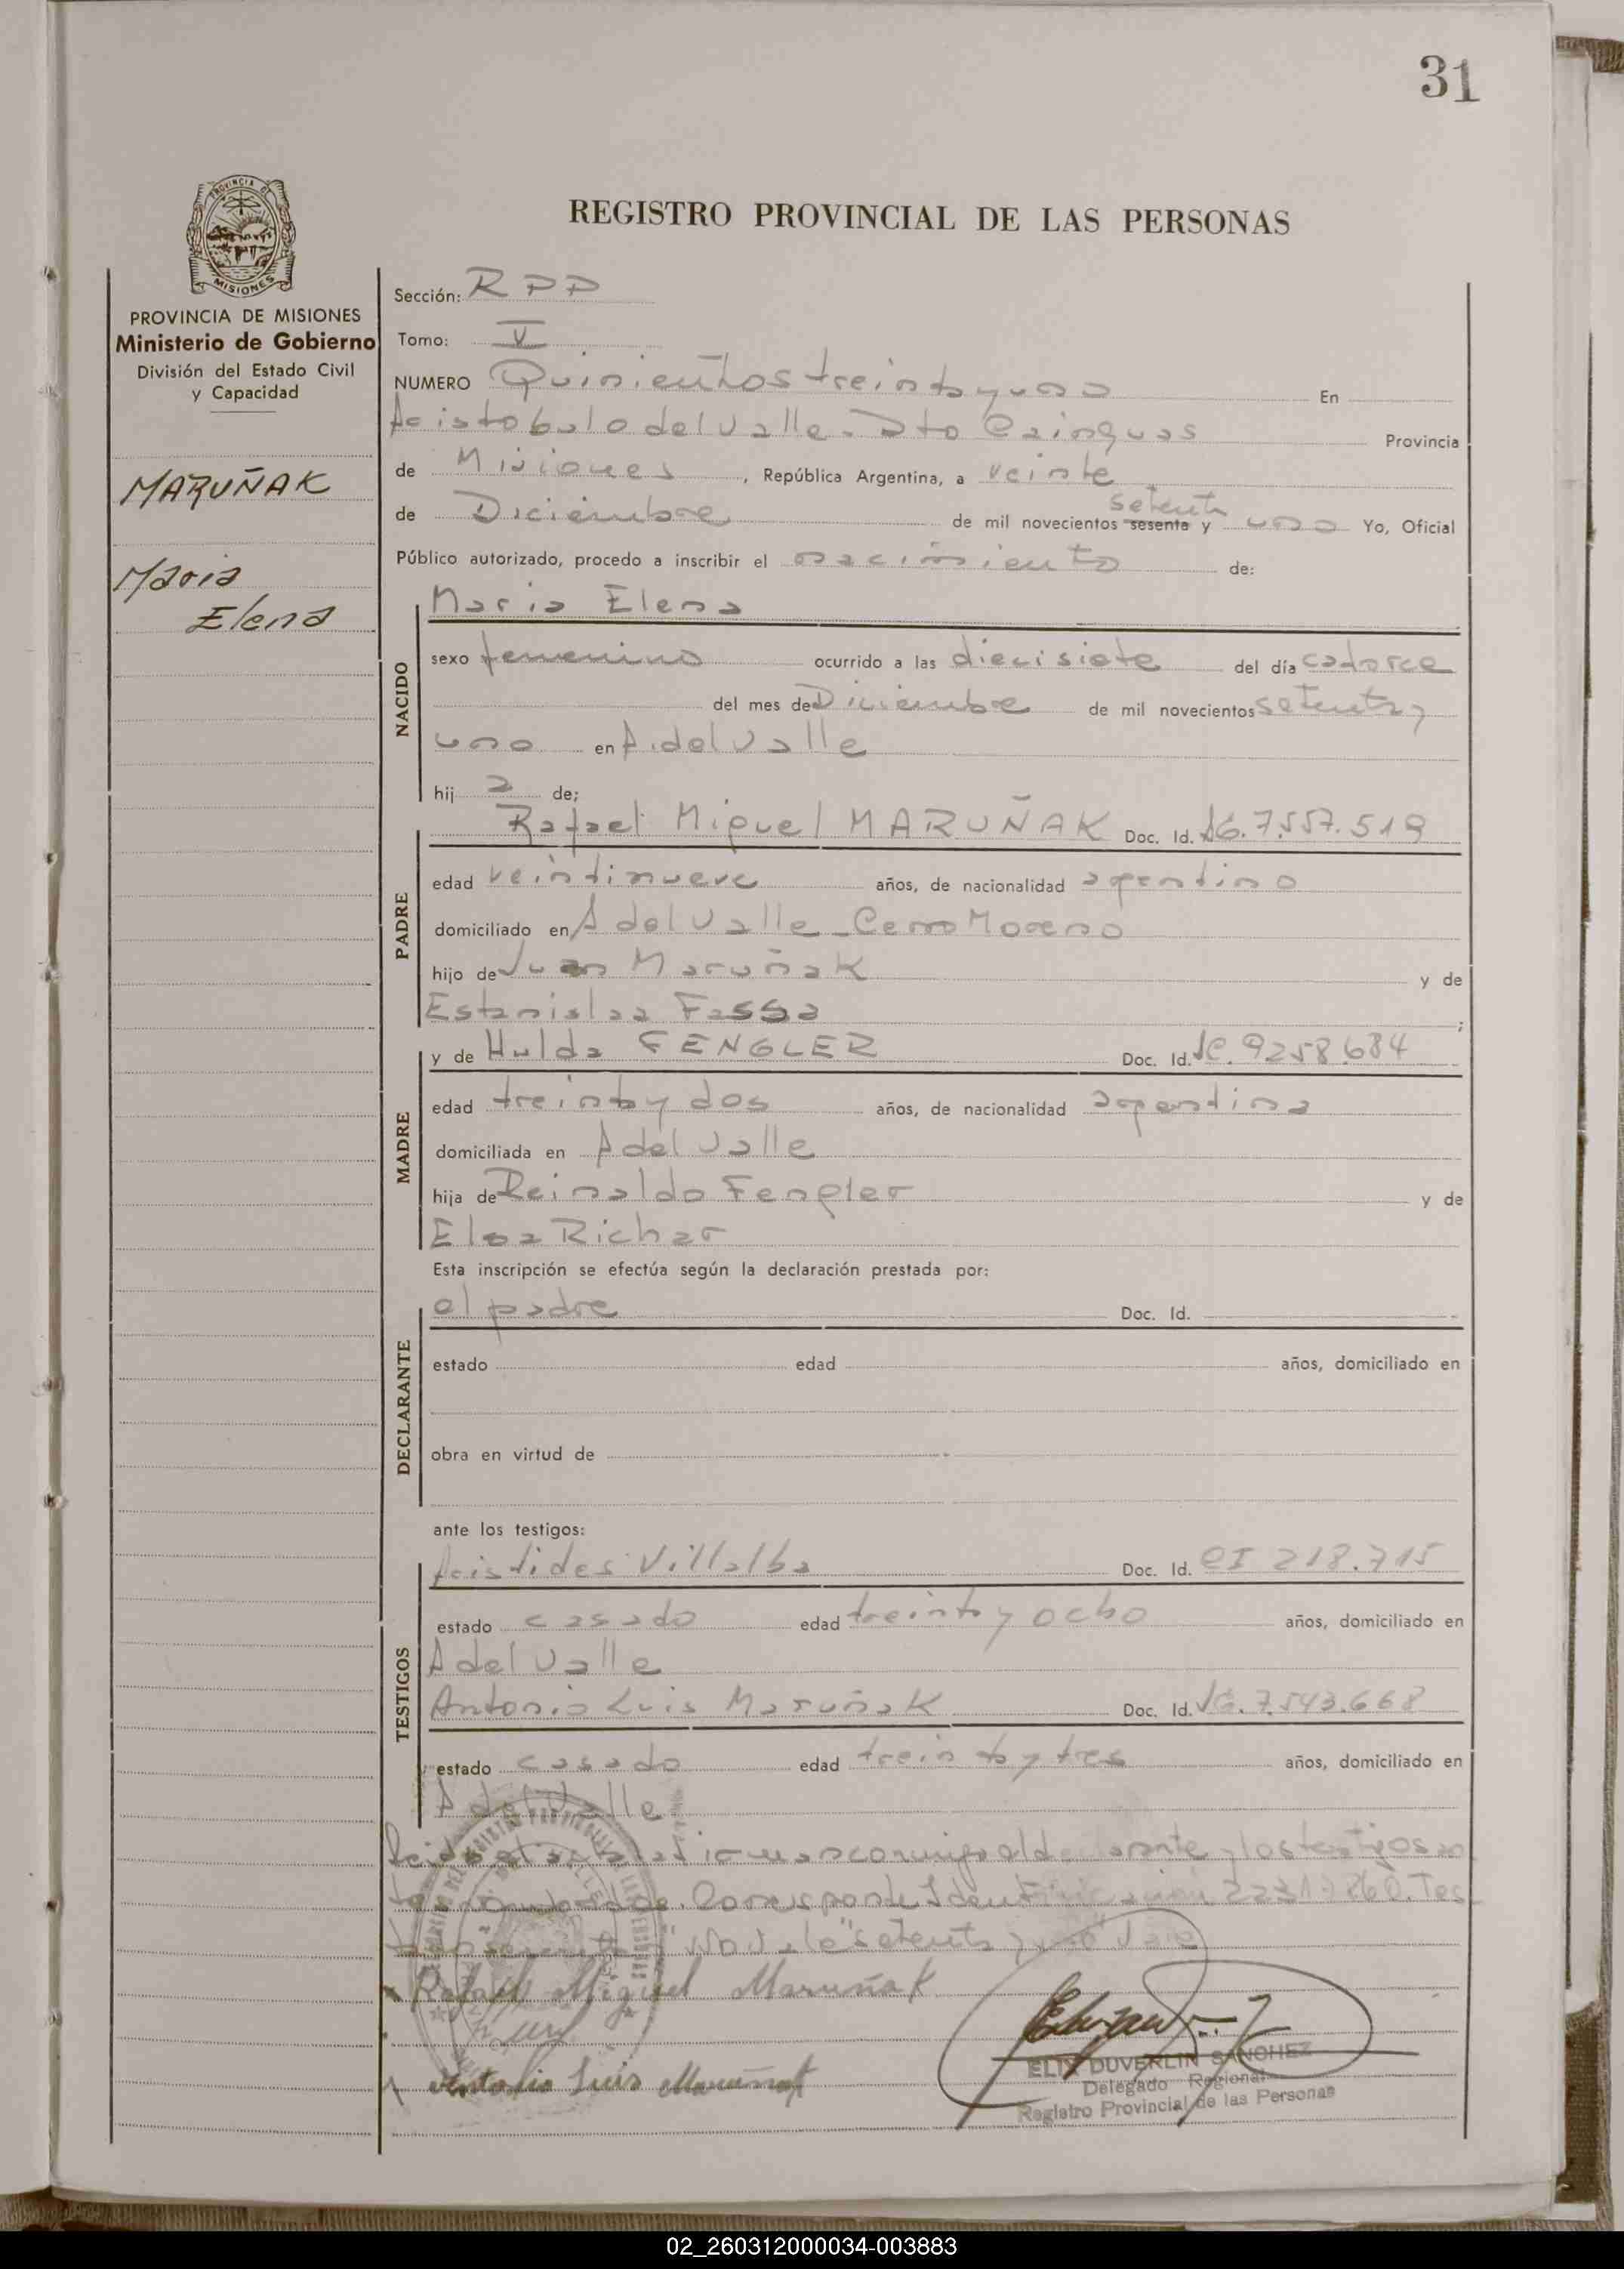 31
PROVINCIA DE
MISIONES
REGISTRO PROVINCIAL DE LAS PERSONAS
PROVINCIA DE MISIONES
Ministerio de Gobierno
División del Estado Civil
y Capacidad
MARUÑAK
Maria
Elena
Sección: RPP
Tomo: V
NUMERO Quinientos treinta y uno En
Aristobulo del Valle - Dto Cainguas Provincia
de Misiones, República Argentina, a veinte
setenta
de Diciembre de mil novecientos sesenta y uno Yo, Oficial
Público autorizado, procedo a inscribir el nacimiento de:
NACIDO
Maria Elena
sexo femenino ocurrido a las diecisiete del día catorce
del mes de Diciembre de mil novecientos setenta y
uno en A. del Valle
hij a de;
PADRE
Rafael Miguel MARUÑAK Doc. Id. 7.557.519
edad veintinueve años, de nacionalidad argentino
domiciliado en A del Valle - Cerro Moreno
hijo de Juan Maruñak y de
Estanislaa Fassa ;
MADRE
y de Hulda FENGLER Doc. Id. 9258.684
edad treinta y dos años, de nacionalidad argentina
domiciliada en A del Valle
hija de Reinaldo Fengler y de
Elsa Richar
Esta inscripción se efectúa según la declaración prestada por:
DECLARANTE
el padre Doc. Id.
estado edad años, domiciliado en
obra en virtud de
ante los testigos:
TESTIGOS
Aristides Villalba Doc. Id. CI 218.715
estado casado edad treinta y ocho años, domiciliado en
A del Valle
Antonio Luis Maruñak Doc. Id. 7.543.668
estado casado edad treinta y tres años, domiciliado en
A del Valle
Leida el acta la firman conmigo el declarante y los testigos
Corresponde Identificacion Tes
no vale "setenta y uno" Vale
Rafael Miguel Maruñak
Antonio Luis Maruñak
ELIX DUVERLIN SANCHEZ
Delegado Regional
Registro Provincial de las Personas
02_260312000034-003883